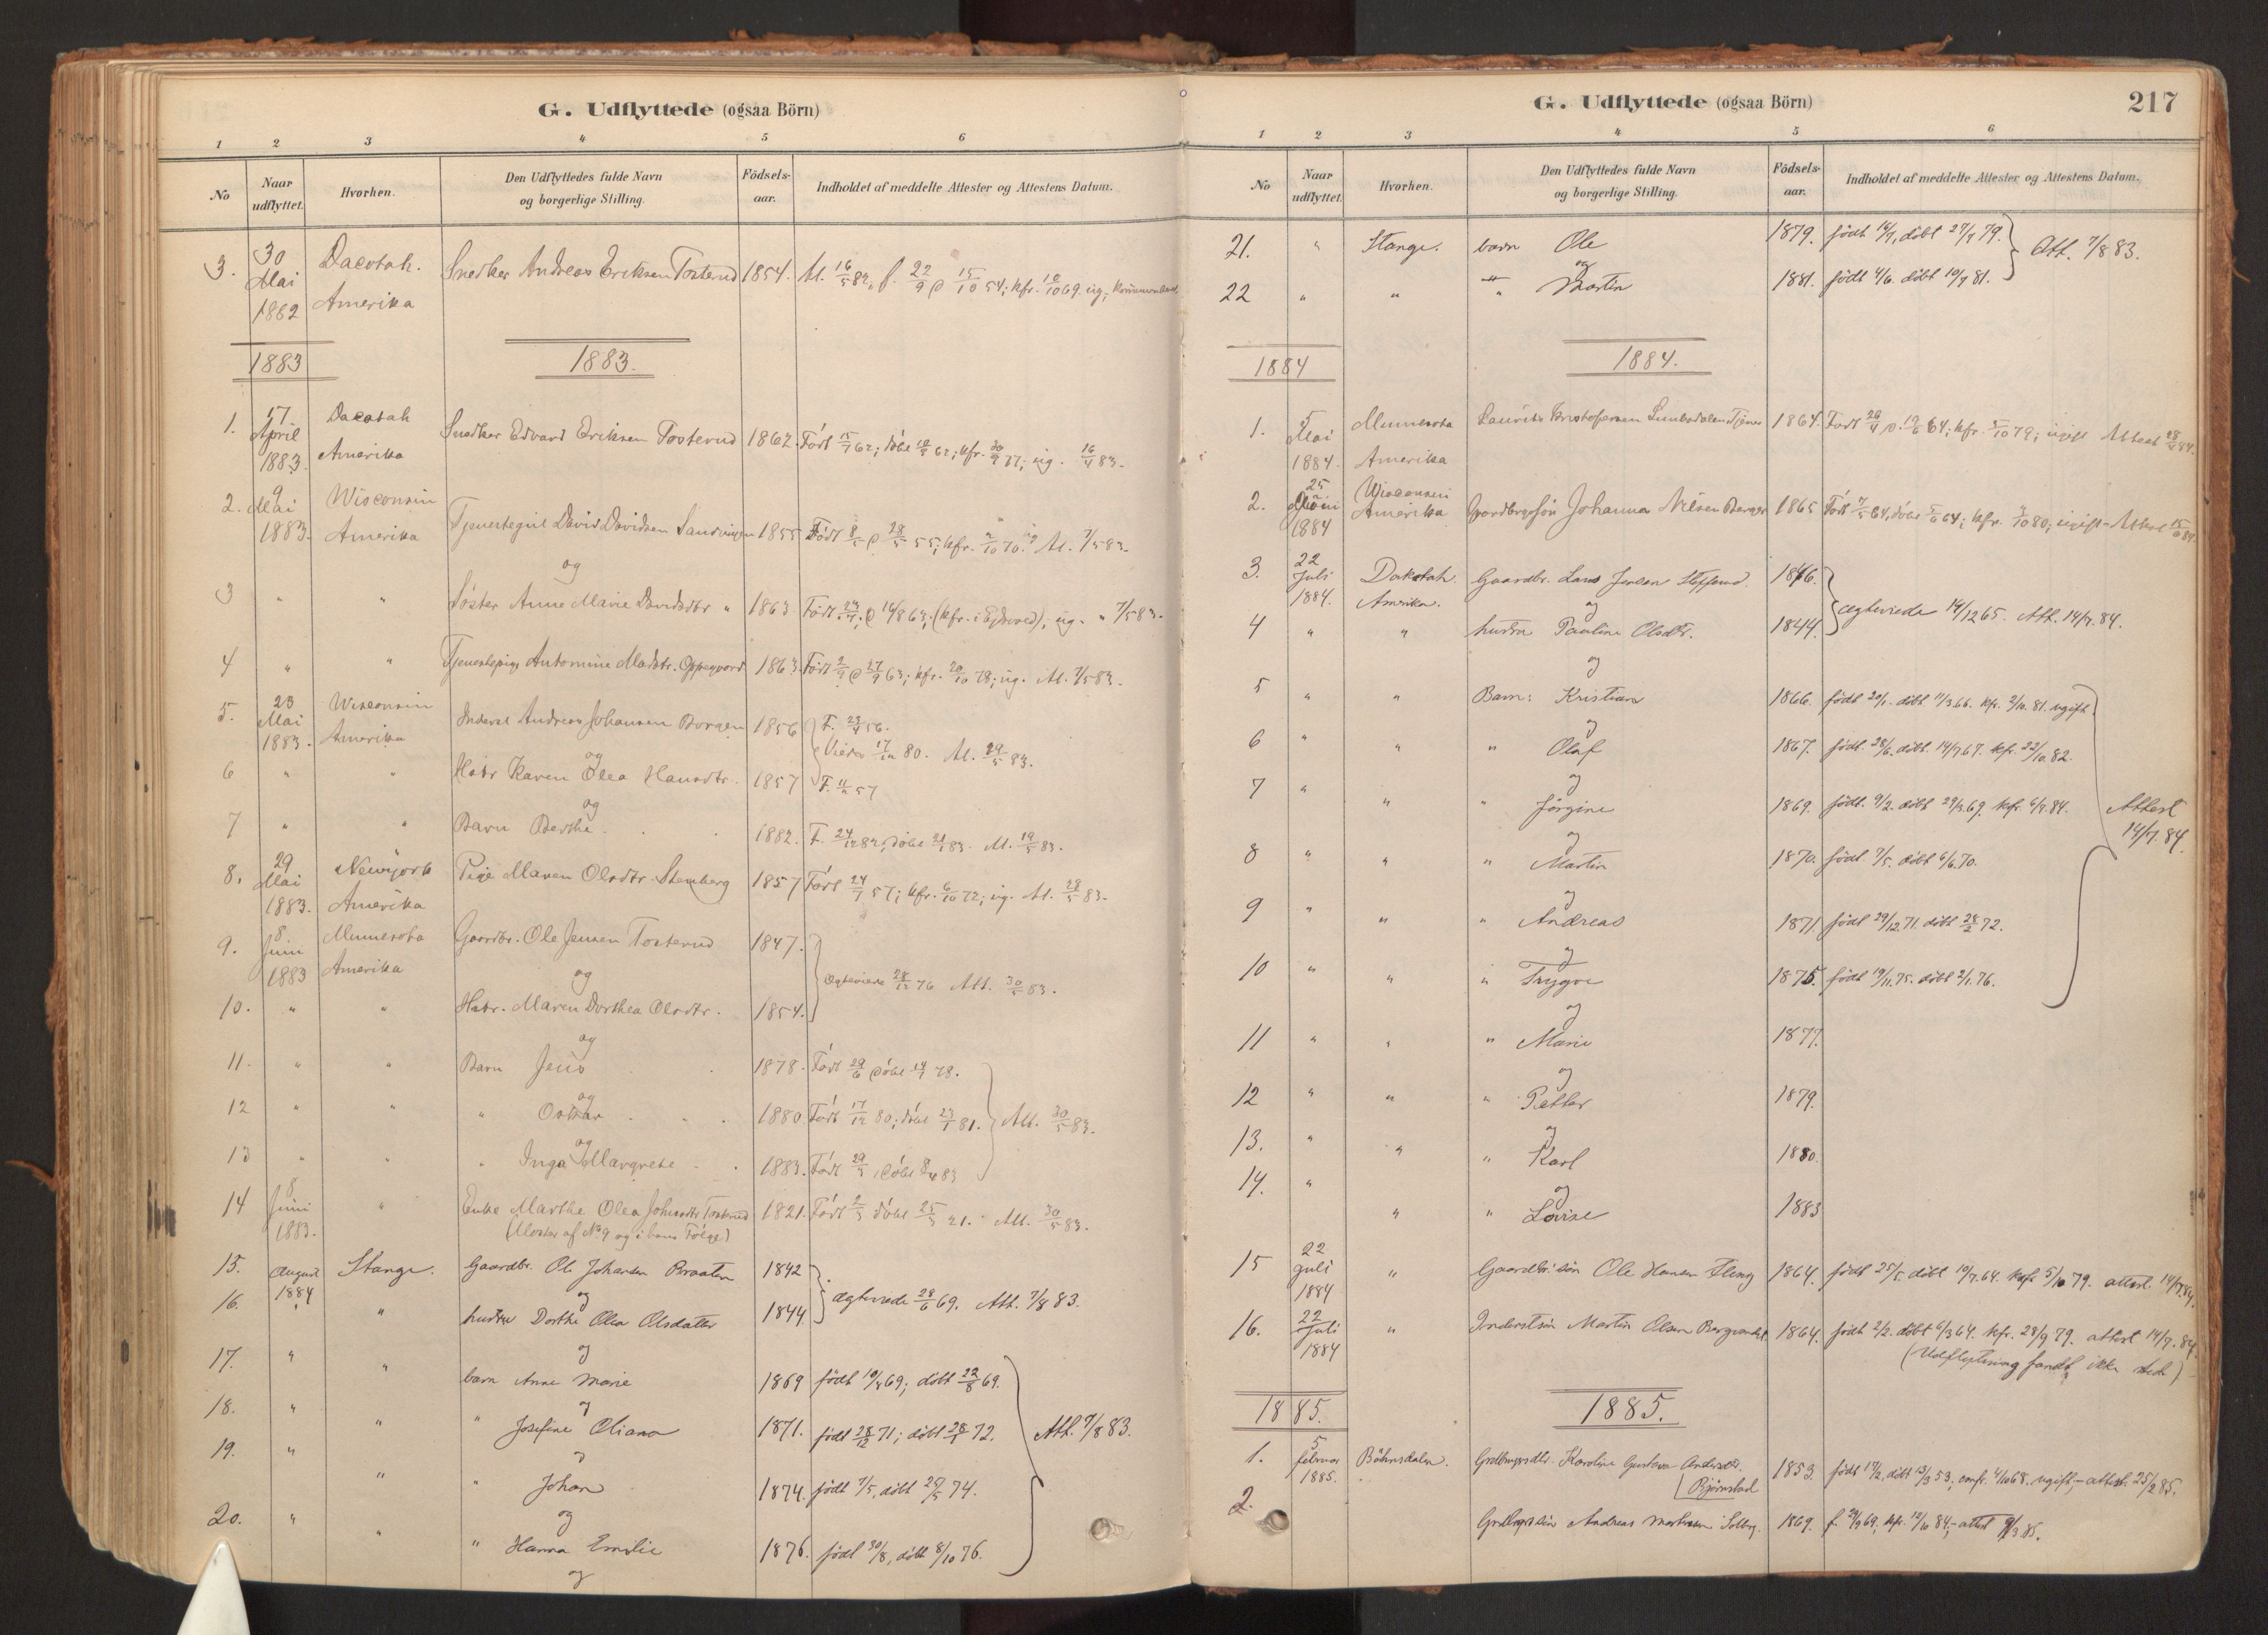 G. Udflyttede (ogsaa Börn)
1 2 3 4 5 6
No Naar udflyttet. Hvorhen. Den Udflyttedes fulde Navn og borgerlige Stilling. Födsels-aar. Indholdet af meddelte Attester og Attestens Datum.
3. 30 Mai 1882 Dacotah. Amerika Snedker Andreas Eriksen Tosterud 1854. At. 16/5 82, f. 22/9 d 15/10 54; kfr. 10/10 69. ug;
1883 1883.
1. 17 April 1883. Dacotah Amerika Snedker Edvard Eriksen Tosterud 1862. Födt 15/7 62; döbt 10/8 62; kfr. 30/9 77; ug. 16/4 83.
2. 9 Mai 1883. Wisconsin Amerika Tjenestegut David Davidsen Sandvingen 1855 Födt 8/5 d 28/5 55; kfr. 2/10 70. ug At. 7/5 83.
og
3 " " Söster Anne Marie Davidsdtr " 1863. Födt 23/7; d 16/8 63; (kfr. i Eidsvold), ug. " 7/5 83.
4 " " Tjenestepige Antomine Madsdtr. Oppegaard 1863. Födt 2/9 d 27/9 63; kfr. 20/10 78; ug. At. 7/5 83.
5. 23 Mai 1883. Wisconsin Amerika Inderst Andreas Johansen Borgen 1856 F. 23/4 56.
Viede 17/12 80. At. 19/5 83.
og
6 " " Hstr Karen Olea Hansdtr. 1857 F. 57
og
7 " " Barn Berthe. 1882. F. 24/12 82, döbt 21/1 83. At. 19/5 83.
8. 29 Mai 1883. Newyork Amerika Pige Maren Olsdtr. Stenberg 1857 Födt 24/7 57; kfr. 6/10 72; ug. At. 28/5 83.
9. 8 Juni 1883 Minnesota Amerika Gaardbr. Ole Jensen Tosterud 1847.
og ægteviede 28/12 76 Att. 30/5 83.
10. " " Hstr. Maren Dorthea Olsdtr. 1854.
og
11. " " Barn Jens 1878. Födt 29/6 döbt 14/7 78.
og
12 " " " Oskar 1880. Födt 17/12 80; döbt 23/1 81. Att. 30/5 83.
og
13 " " " Inga Margrete 1883. Födt 29/3 döbt 8/4 83
14 8 Juni 1883. " Enke Marthe Olea Johnsdtr Tosterud 1821. Födt 2/3 döbt 25/3 21. Att. 30/5 83.
(Moster af No 9 og i hans Fölge)
15. August 1884 Stange. Gaardbr. Ole Johansen Braaten 1842
og ægteviede 28/6 69. Att. 7/8 83.
16. " " hustru Dorthe Olea Olsdatter 1844
og
17. " " barn Anne Marie 1869 födt 10/8 69; döbt 22/8 69.
og
18. " " " Josefine Oliana 1871. födt 28/12 71; döbt 28/1 72. Att. 7/8 83.
og
19. " " " Johan 1874. födt 7/5, döbt 24/5 74.
og
20. " " " Hanna Emilie 1876. födt 30/8, döbt 8/10 76.
og
G. Udflyttede (ogsaa Börn) 217
1 2 3 4 5 6
No Naar udflyttet. Hvorhen. Den Udflyttedes fulde Navn og borgerlige Stilling. Födsels-aar. Indholdet af meddelte Attester og Attestens Datum.
21. " Stange. barn Ole 1879. födt 14/7, döbt 27/7 79. Att. 7/8 83.
og
22 " " " Martin 1881. födt 4/6. döbt 10/7 81.
1884 1884.
1. 5 Mai 1884. Minnesota Amerika Laurits Kristofersen Tjener 1864. Födt 20/4 d. 19/6 64; kfr. 5/10 79; ugift Attest 28/4 84.
2. 25 Juni 1884 Wisconsin Amerika Gaardbrgsön Johannes Nilsen Berger 1865 Födt 7/5 64, döbt 5/6 64; kfr. 3/10 80; ugift - Attest
3. 22 Juli 1884. Dakotah. Amerika. Gaardbr. Lars Jensen 1846.
og ægteviede 14/12 65. Att. 14/7. 84.
4 " " hustru Pauline Olsdtr. 1844.
og
5 " " Barn: Kristian 1866. födt 20/1. döbt 11/3 66. kfr. 2/10. 81. ugift.
og
6 " " " Olaf 1867. födt. 28/6. döbt. 14/7 67. kfr. 22/10. 82.
og
7 " " " Jörgine 1869. födt. 9/2. döbt 29/3. 69. kfr 6/7. 84. Attest 14/7. 84.
og
8 " " " Martin 1870. födt. 7/5. döbt 6/6. 70.
og
9 " " " Andreas 1871. födt 29/12. 71. döbt 28/2 72.
og
10 " " " Trygve 1875. födt 19/11. 75. döbt 2/1. 76.
og
11 " " " Marie 1877.
og
12 " " " Petter 1879.
og
13. " " " Karl 1880.
og
14. " " " Lovise 1883
15 22 juli 1884 " Gaardbr.sön Ole Hansen Fleng 1864. födt 25/5. döbt 10/7. 64. kfr. 5/10 79. attest. 14/7 84.
16. 22 juli 1884 " Inderstsön Martin Olsen 1864. födt 2/2. döbt 6/3 64. kfr. 28/9 79. attest 14/7. 84.
(Udflytning fandt ikke sted)
1885. 1885.
1. 5 februar 1885. Böhnsdalen. Grdbrgrsdtr. Karoline Gustava Andersdtr. Björnstad 1853. födt 17/2, döbt 13/3 53; conf. 4/10 68. ugift; - attest. 25/2 85.
2. Grdbrgrssön Andreas Martinsen Solberg. 1869. f. 24/9 69, kfr. 12/10 84, - attest 9/3 85.